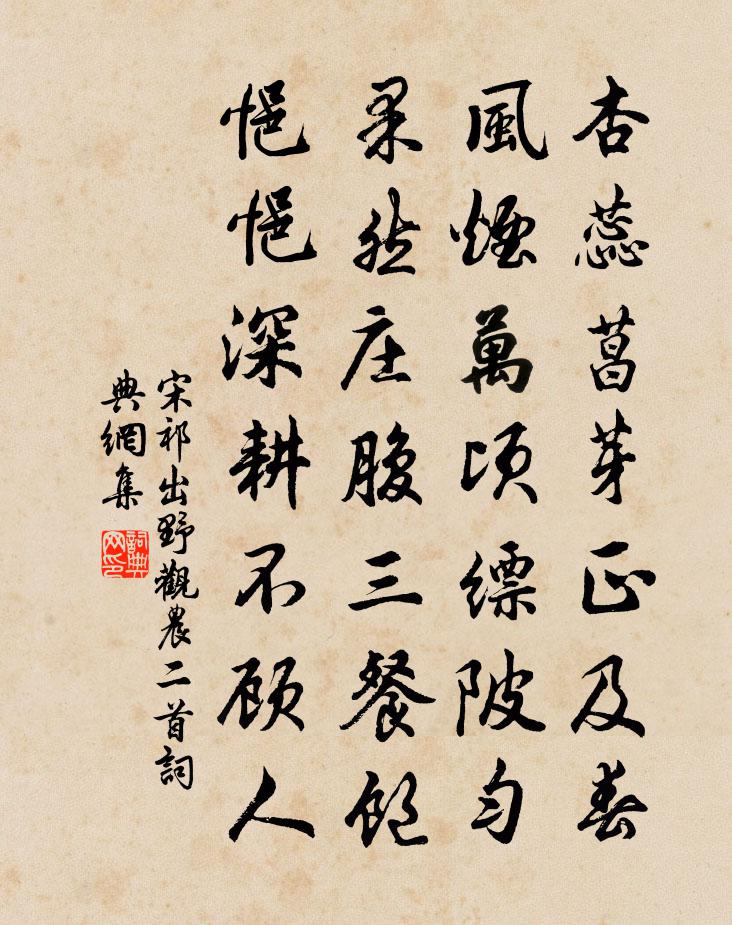 杏蕊菖芽正及春
風煙萬頃縹陂勻
果然庄腹三餐飽
悒悒深耕不顾人
宋祁出野觀農二首詞
典網集
詞典网印